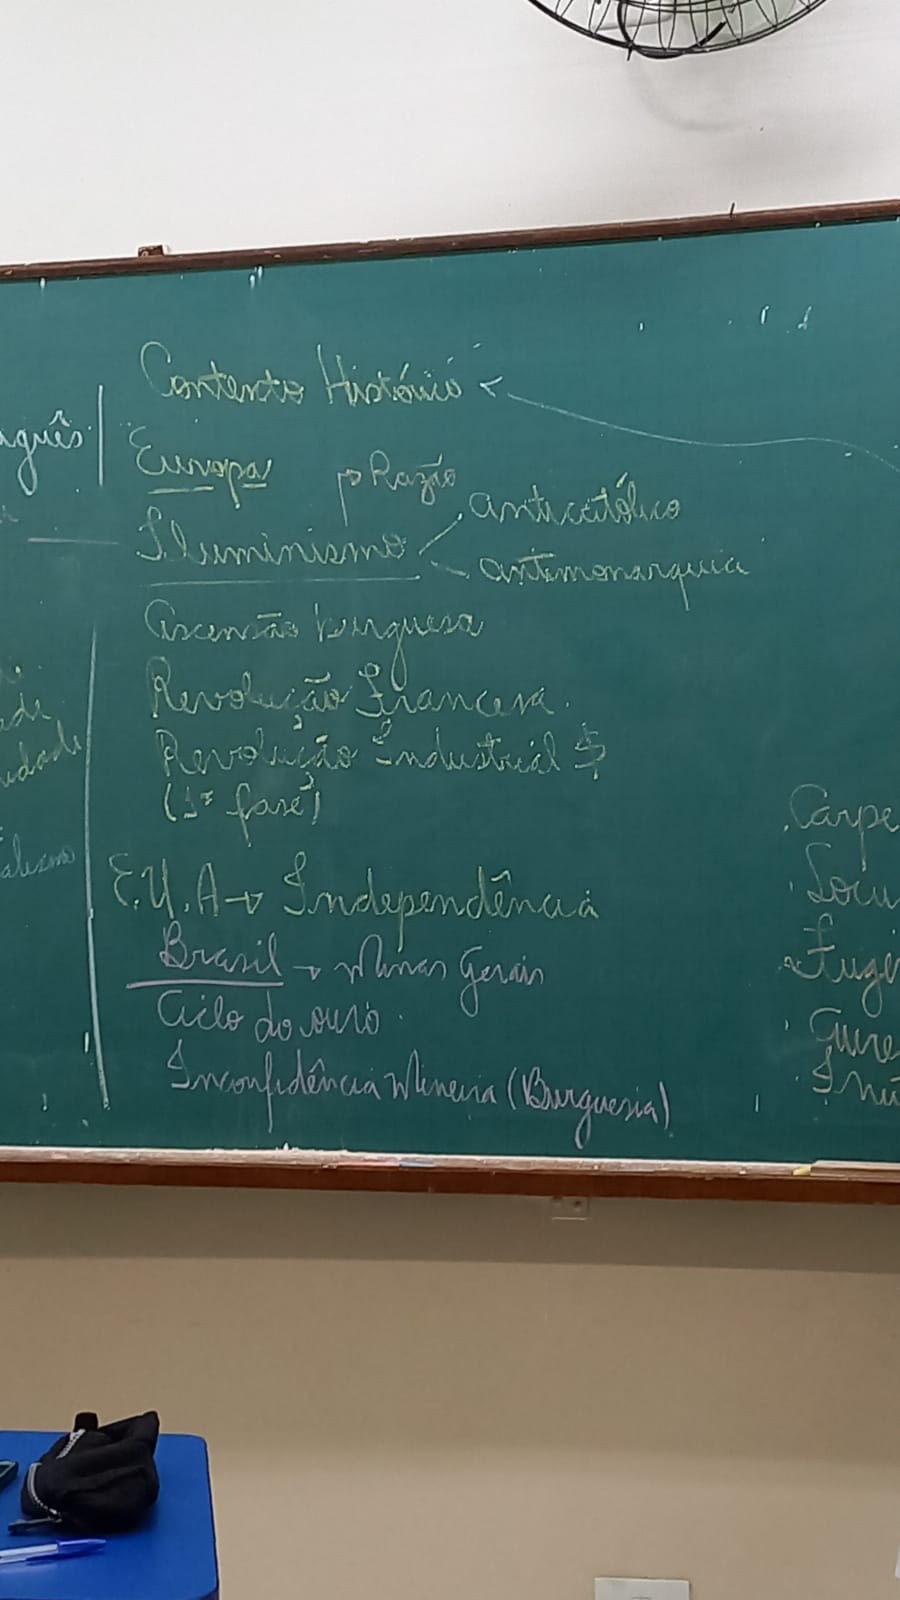 Contexto Histórico
Europa
Razão
Iluminismo
anticatólico
antimonarquia
ascensão burguesa
Revolução Francesa.
Revolução Industrial $
(1ª fase)
E.U.A → Independência
Brasil → Minas Gerais
Ciclo do ouro
Inconfidência Mineira (Burguesia)
uguês
idade
alismo
Carpe
Locu
Fuge
Inu